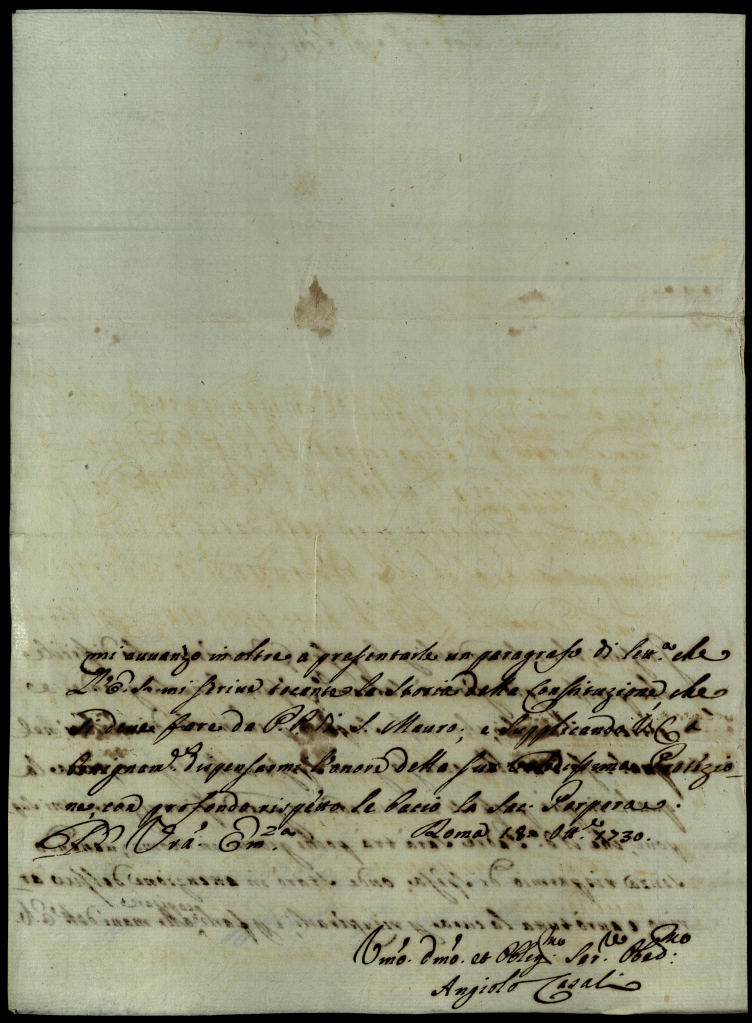 mi auuanzo in oltre a presentarle un paragrafo di lett.ª che
mi scriue toccante la Storia della Constituzione, che
si deue fare da P.P. di S. Mauro; e supplicando V. E. a
benignam.ᵉ dispensarmi l'onore della sua Protezio-
ne, con profondo rispetto le bacio la Sac. Porpora.
D. Vrã. Em.ᶻᵃ Roma 18. Ott.ᵉ 1730.
Vmõ. dmõ. et Oblig.ᵐᵒ Ser.ʳᵉ Obed.ᵐᵒ
Angiolo Casali